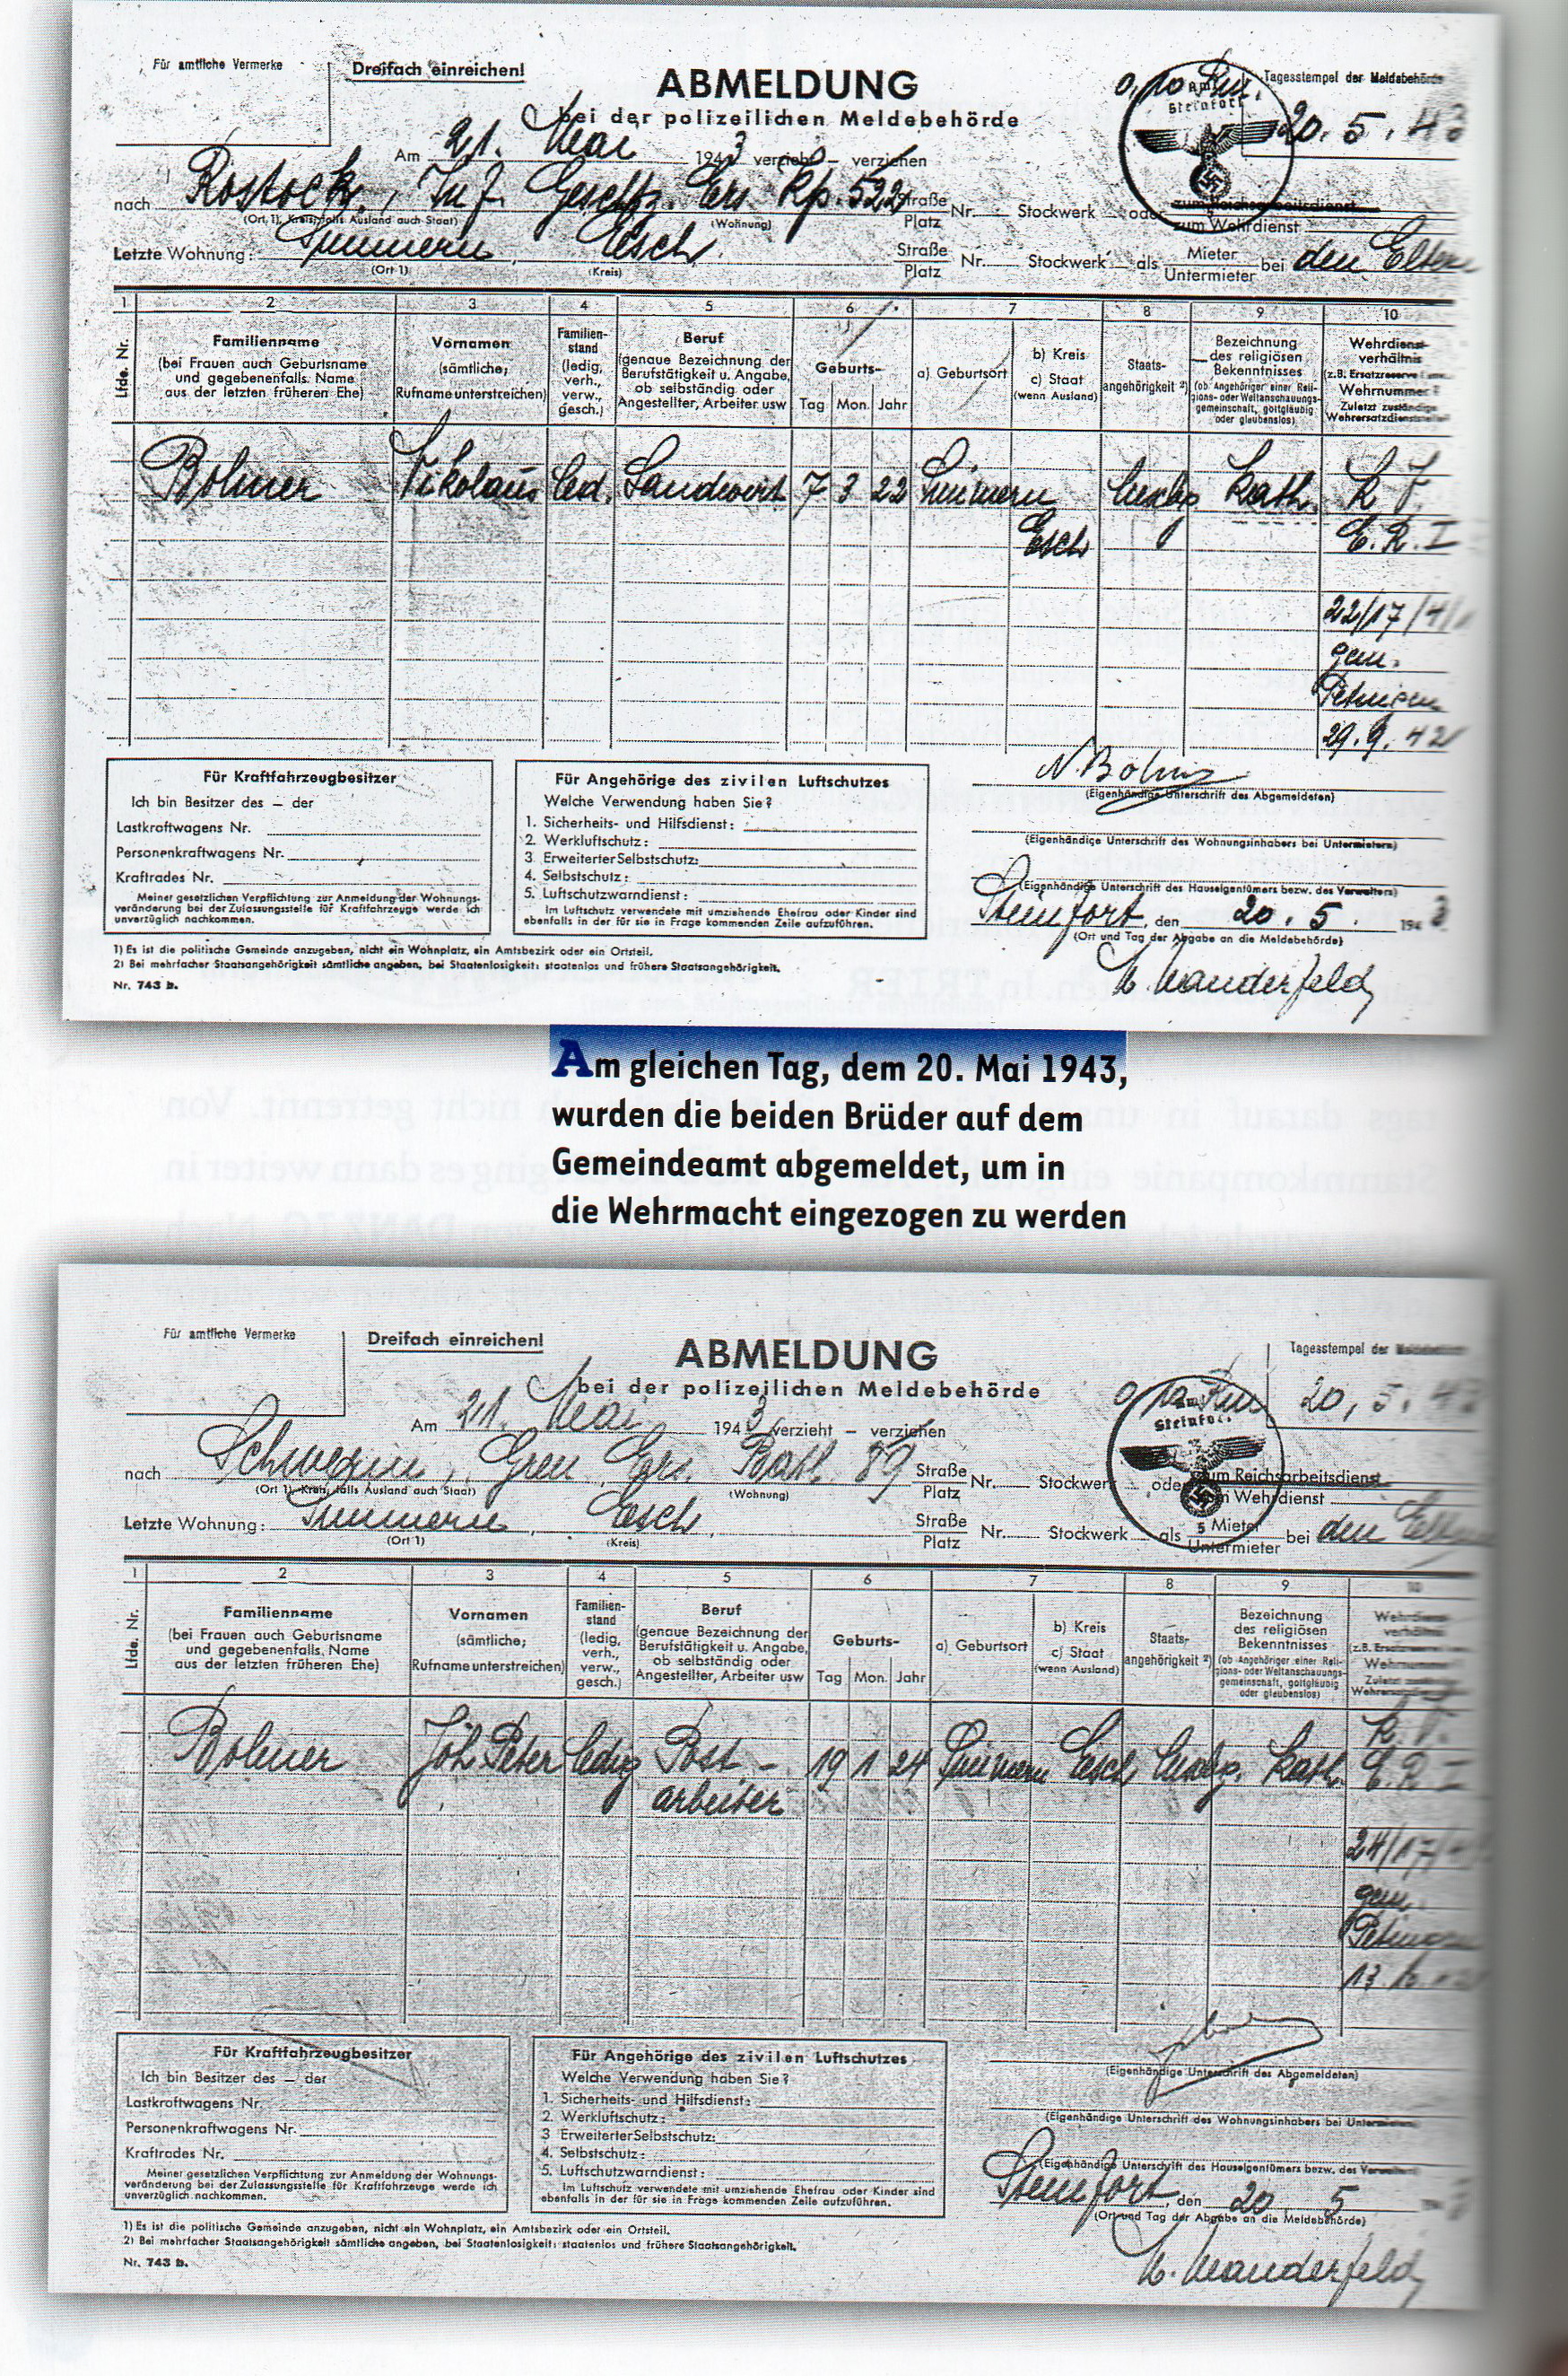 Für amtliche Vermerke
Dreifach einreichen!
ABMELDUNG
bei der polizeilichen Meldebehörde
Tagesstempel der Meldebehörde
20. 5. 43
Am 21. Mai 1943 verzieht – verziehen
nach Rostock, Inf. Gesch. Ers. Kp. 522 Straße Platz Nr. Stockwerk oder zum Reichsarbeitsdienst zum Wehrdienst
(Ort 1), Kreis, falls Ausland auch Staat) (Wohnung)
Letzte Wohnung: Simmern, Esch, Straße Platz Nr. Stockwerk als Mieter Untermieter bei den Eltern
(Ort 1) (Kreis)
1 2 3 4 5 6 7 8 9 10
Lfde. Nr.
Familienname
(bei Frauen auch Geburtsname
und gegebenenfalls. Name
aus der letzten früheren Ehe)
Vornamen
(sämtliche;
Rufname unterstreichen)
Familien-
stand
(ledig,
verh.,
verw.,
gesch.)
Beruf
(genaue Bezeichnung der
Berufstätigkeit u. Angabe,
ob selbständig oder
Angestellter, Arbeiter usw
Geburts-
Tag Mon. Jahr
a) Geburtsort
b) Kreis
c) Staat
(wenn Ausland)
Staats-
angehörigkeit ²)
Bezeichnung
des religiösen
Bekenntnisses
(ob Angehöriger einer Reli-
gions- oder Weltanschauungs-
gemeinschaft, gottgläubig
oder glaubenslos)
Wehrdienst-
verhältnis
(z.B. Ersatzreserve
Wehrnummer
Zuletzt zuständige
Wehrersatzdienststelle
Bolmer Nikolaus led. Landwirt 7 3 22 Simmern Luxbg. Kath. K. V.
Esch E. R. I
22/17/4/
gem.
Petingen
29. 9. 42
Für Kraftfahrzeugbesitzer
Ich bin Besitzer des – der
Lastkraftwagens Nr.
Personenkraftwagens Nr.
Kraftrades Nr.
Meiner gesetzlichen Verpflichtung zur Anmeldung der Wohnungs-
veränderung bei der Zulassungsstelle für Kraftfahrzeuge werde ich
unverzüglich nachkommen.
Für Angehörige des zivilen Luftschutzes
Welche Verwendung haben Sie?
1. Sicherheits- und Hilfsdienst:
2. Werkluftschutz:
3 Erweiterter Selbstschutz:
4. Selbstschutz:
5. Luftschutzwarndienst:
Im Luftschutz verwendete mit umziehende Ehefrau oder Kinder sind
ebenfalls in der für sie in Frage kommenden Zeile aufzuführen.
N. Bolmer
(Eigenhändige Unterschrift des Abgemeldeten)
(Eigenhändige Unterschrift des Wohnungsinhabers bei Untermietern)
(Eigenhändige Unterschrift des Hauseigentümers bezw. des Verwalters)
Steinfort, den 20. 5. 1943
(Ort und Tag der Abgabe an die Meldebehörde)
1) Es ist die politische Gemeinde anzugeben, nicht ein Wohnplatz, ein Amtsbezirk oder ein Ortsteil.
2) Bei mehrfacher Staatsangehörigkeit sämtliche angeben, bei Staatenlosigkeit: staatenlos und frühere Staatsangehörigkeit.
Nr. 743 b.
Am gleichen Tag, dem 20. Mai 1943,
wurden die beiden Brüder auf dem
Gemeindeamt abgemeldet, um in
die Wehrmacht eingezogen zu werden
Für amtliche Vermerke
Dreifach einreichen!
ABMELDUNG
bei der polizeilichen Meldebehörde
Tagesstempel der
20, 5. 43
Am 21. Mai 1943 verzieht – verziehen
nach Schwerin, Gren Ers. Batl. 89 Straße Platz Nr. Stockwerk oder zum Reichsarbeitsdienst zum Wehrdienst
(Ort 1), Kreis, falls Ausland auch Staat) (Wohnung)
Letzte Wohnung: Simmern, Esch, Straße Platz Nr. Stockwerk als Mieter Untermieter bei den Eltern
(Ort 1) (Kreis)
1 2 3 4 5 6 7 8 9 10
Lfde. Nr.
Familienname
(bei Frauen auch Geburtsname
und gegebenenfalls. Name
aus der letzten früheren Ehe)
Vornamen
(sämtliche;
Rufname unterstreichen)
Familien-
stand
(ledig,
verh.,
verw.,
gesch.)
Beruf
(genaue Bezeichnung der
Berufstätigkeit u. Angabe,
ob selbständig oder
Angestellter, Arbeiter usw
Geburts-
Tag Mon. Jahr
a) Geburtsort
b) Kreis
c) Staat
(wenn Ausland)
Staats-
angehörigkeit ²)
Bezeichnung
des religiösen
Bekenntnisses
(ob Angehöriger einer Reli-
gions- oder Weltanschauungs-
gemeinschaft, gottgläubig
oder glaubenslos)
Bolmer Joh. Peter ledig Post- 19 1 24 Simmern Esch Luxbg. Kath. K. V.
arbeiter E. R. I
24/17/
gem.
Petingen
Für Kraftfahrzeugbesitzer
Ich bin Besitzer des – der
Lastkraftwagens Nr.
Personenkraftwagens Nr.
Kraftrades Nr.
Meiner gesetzlichen Verpflichtung zur Anmeldung der Wohnungs-
veränderung bei der Zulassungsstelle für Kraftfahrzeuge werde ich
unverzüglich nachkommen.
Für Angehörige des zivilen Luftschutzes
Welche Verwendung haben Sie?
1. Sicherheits- und Hilfsdienst:
2. Werkluftschutz:
3 Erweiterter Selbstschutz:
4. Selbstschutz:
5. Luftschutzwarndienst:
Im Luftschutz verwendete mit umziehende Ehefrau oder Kinder sind
ebenfalls in der für sie in Frage kommenden Zeile aufzuführen.
(Eigenhändige Unterschrift des Abgemeldeten)
(Eigenhändige Unterschrift des Wohnungsinhabers bei Untermietern)
(Eigenhändige Unterschrift des Hauseigentümers bezw. des Verwalters)
Steinfort, den 20. 5
(Ort und Tag der Abgabe an die Meldebehörde)
1) Es ist die politische Gemeinde anzugeben, nicht ein Wohnplatz, ein Amtsbezirk oder ein Ortsteil.
2) Bei mehrfacher Staatsangehörigkeit sämtliche angeben, bei Staatenlosigkeit: staatenlos und frühere Staatsangehörigkeit.
Nr. 743 b.